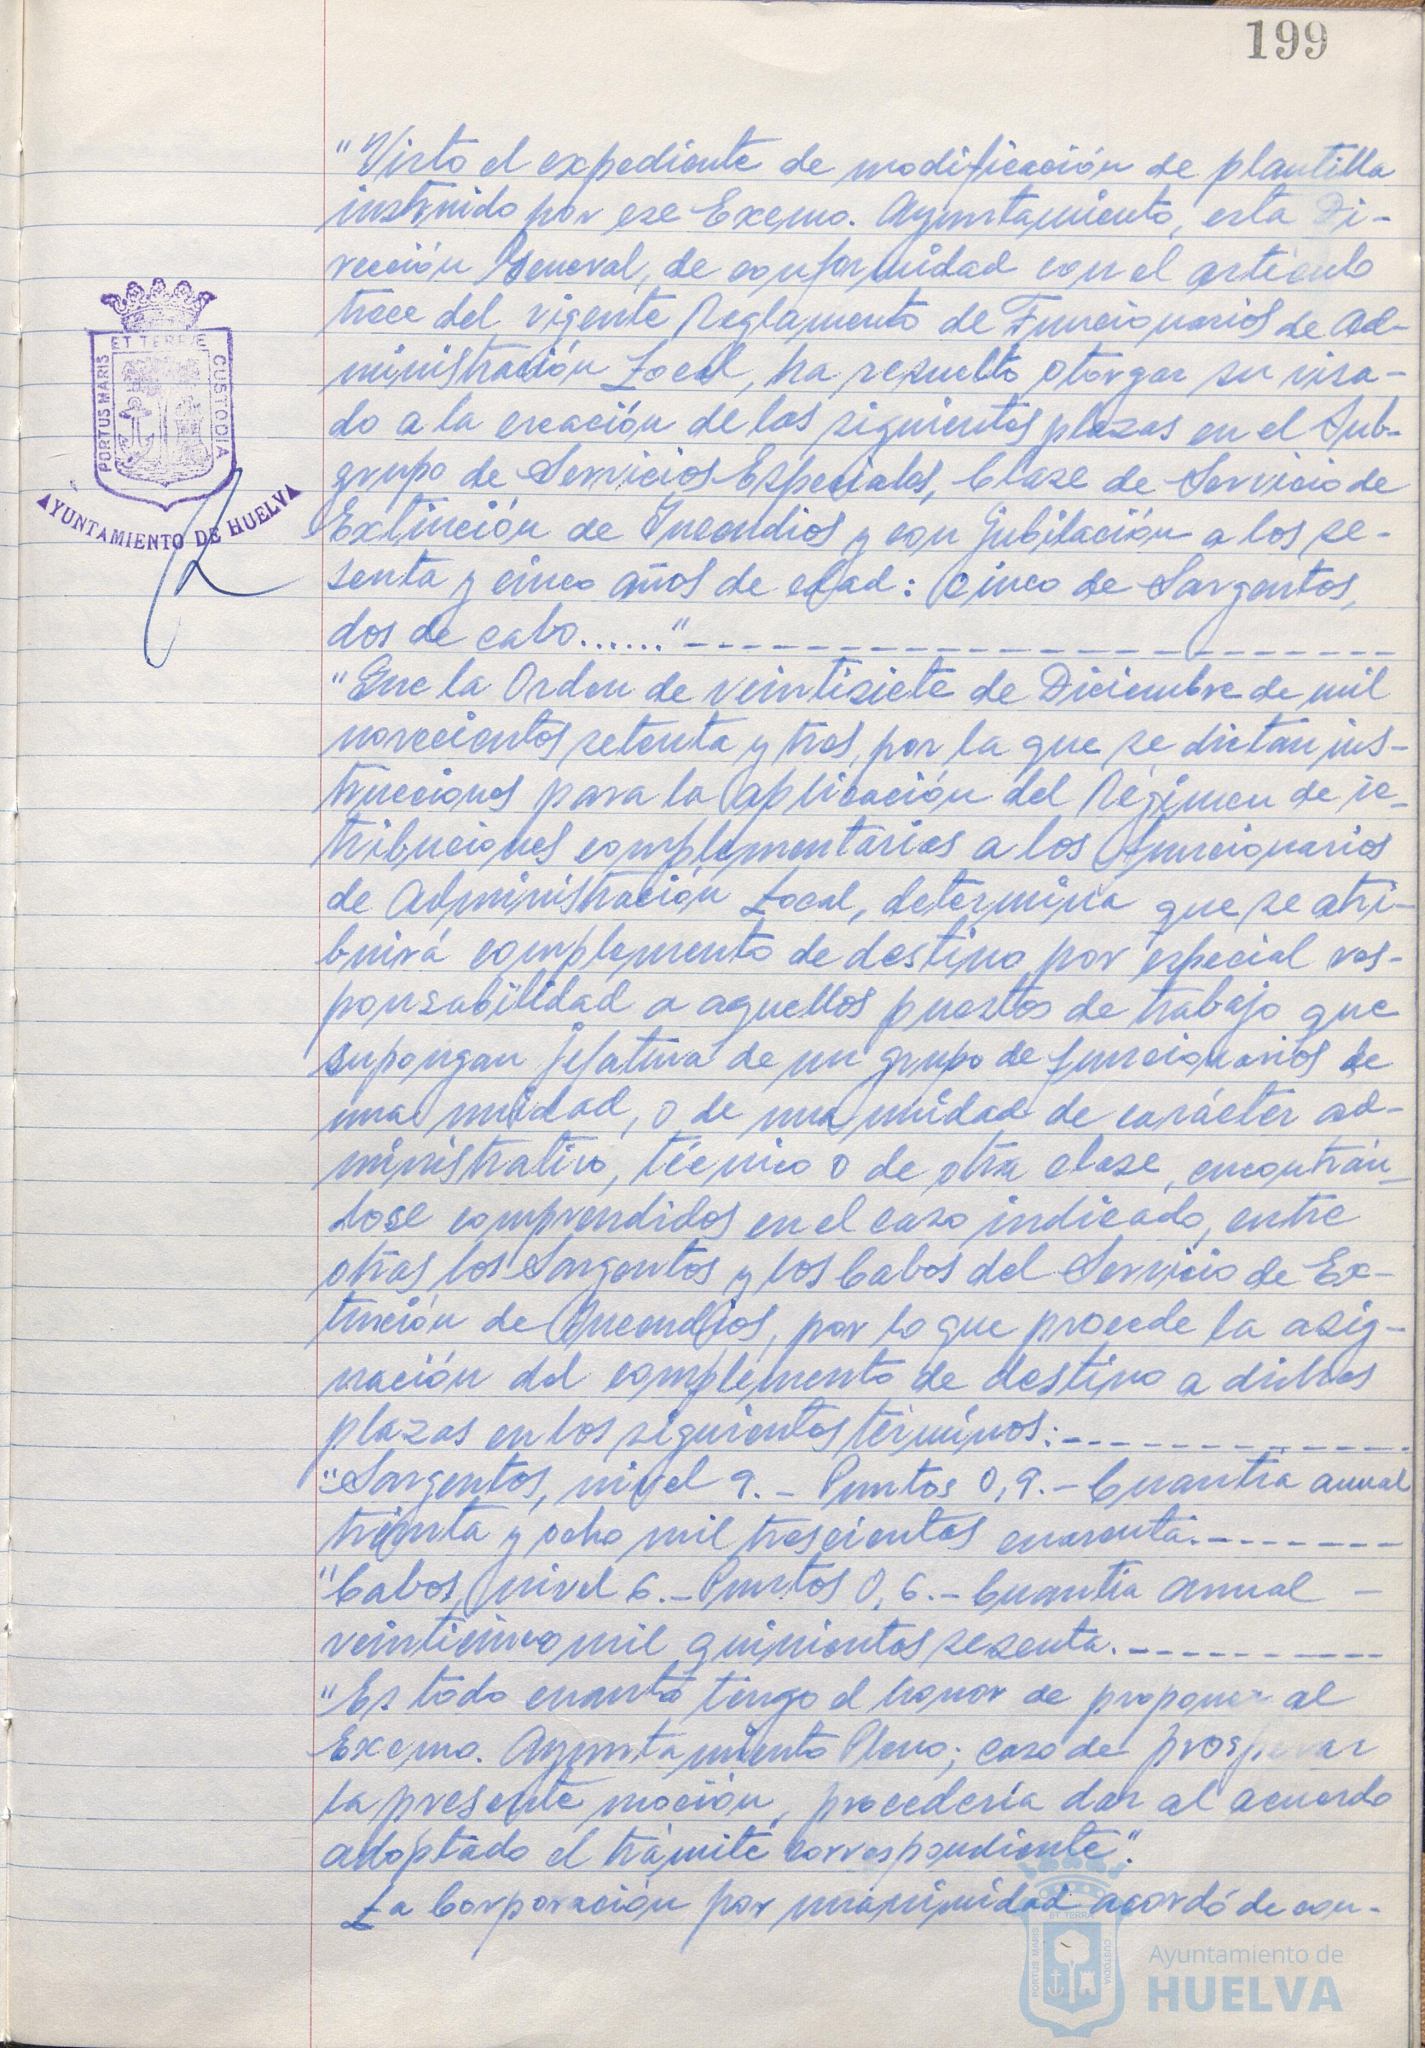 199
"Visto el expediente de modificación de plantilla
instruido por ese Excmo. Ayuntamiento, esta Di-
rección General, de conformidad con el artículo
trece del vigente Reglamento de Funcionarios de Ad-
ministración Local, ha resuelto otorgar su visa-
do a la creación de las siguientes plazas en el Sub-
grupo de Servicios Especiales, Clase de Servicio de
Extinción de Incendios y con jubilación a los se-
senta y cinco años de edad: Cinco de Sargentos,
dos de cabo......"
"Que la Orden de veintisiete de Diciembre de mil
novecientos setenta y tres, por la que se dictan ins-
trucciones para la aplicación del Régimen de re-
tribuciones complementarias a los funcionarios
de Administración Local, determina que se atri-
buirá complemento de destino por especial res-
ponsabilidad a aquellos puestos de trabajo que
supongan jefatura de un grupo de funcionarios de
una unidad, o de una unidad de carácter ad-
ministrativo, técnico o de otra clase, encontrán-
dose comprendidos en el caso indicado, entre
otras, los Sargentos y los Cabos del Servicio de Ex-
tinción de Incendios, por lo que procede la asig-
nación del complemento de destino a dichas
plazas en los siguientes términos:
"Sargentos, nivel 9.- Puntos 0,9.- Cuantía anual
treinta y ocho mil trescientas cuarenta.
"Cabos, nivel 6.- Puntos 0,6.- Cuantía anual -
veinticinco mil quinientas sesenta.
"Es todo cuanto tengo el honor de proponer al
Excmo. Ayuntamiento Pleno; caso de prosperar
la presente moción, procedería dar al acuerdo
adoptado el trámite correspondiente".
La Corporación por unanimidad acordó de con-
PORTUS MARIS
ET TERRÆ
CUSTODIA
AYUNTAMIENTO DE HUELVA
PORTUS MARIS
ET TERRÆ
CUSTODIA
Ayuntamiento de
HUELVA